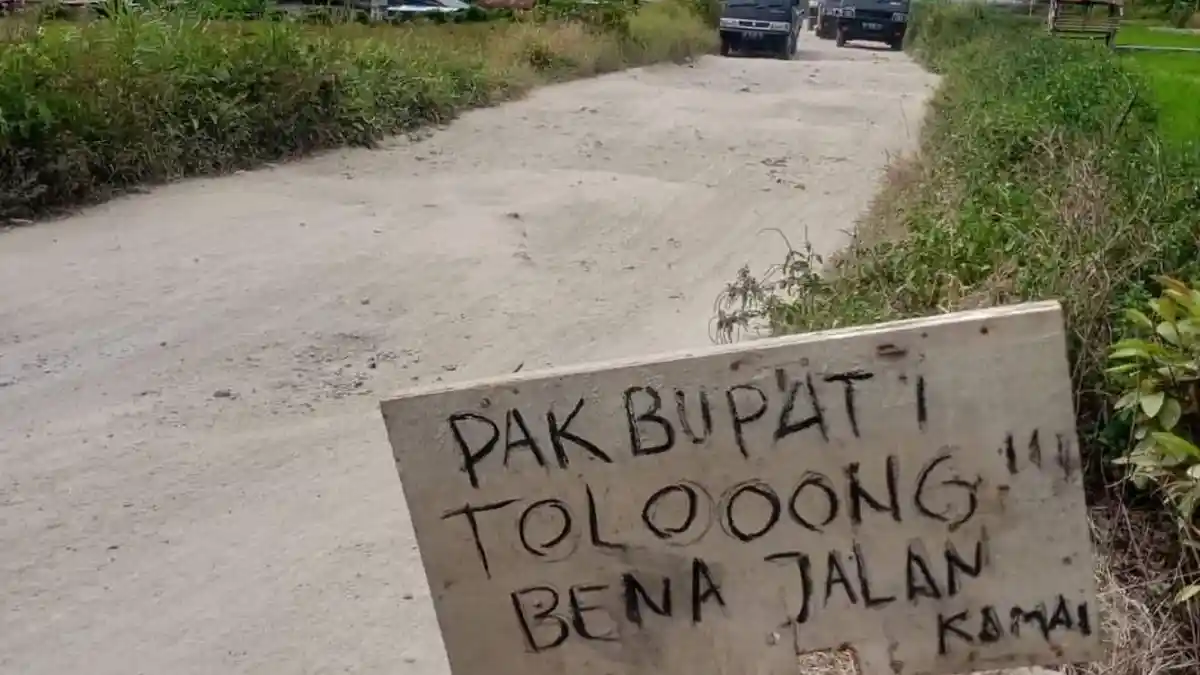 PAK BUPATI
TOLOOONG"!!!
BENA JALAN
KAMAI